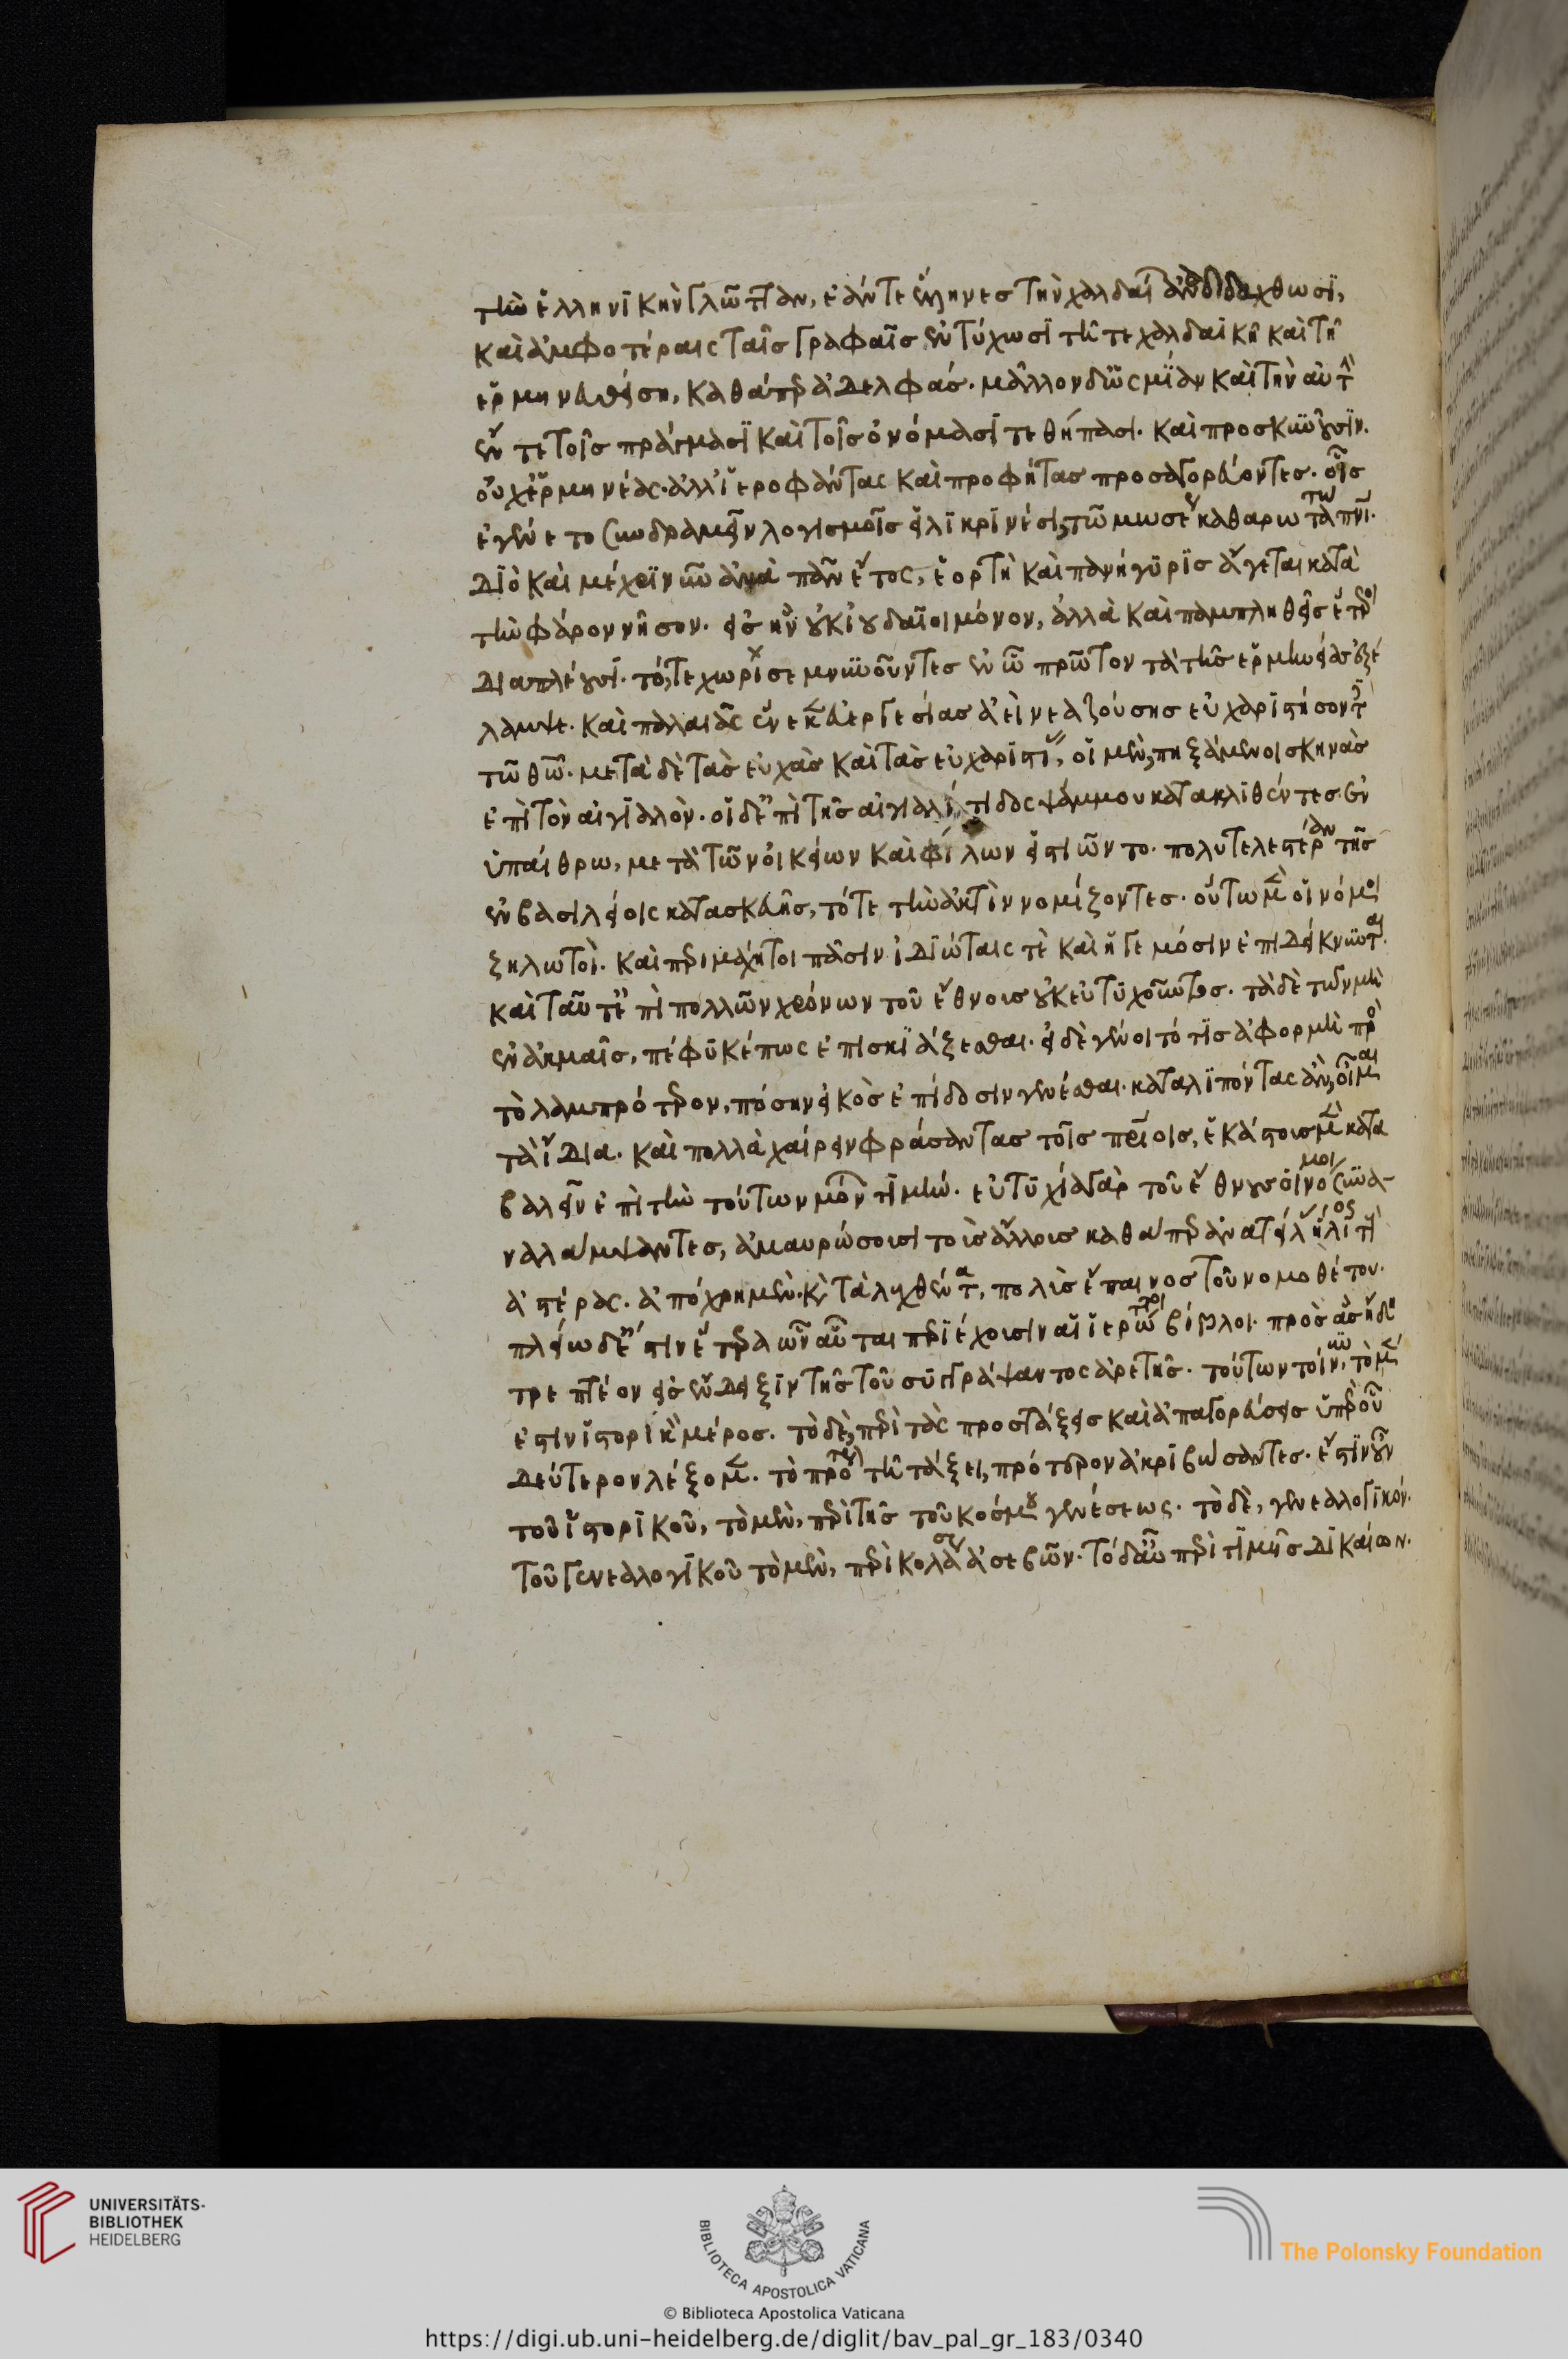 τὴν ἑλληνϊκὴν γλῶτταν, ἐάν τε ἕλληνες τὴν χαλδαί ἀναδιδαχθωσϊ,
καὶ ἀμφοτέραις ταῖς γραφαῖς ἐντύχωσϊ τῆ τε χαλδαϊκῆ καὶ τῆ
ἑρμηνευθείση, καθάπερ ἀδελφάς. μᾶλλον δ' ὡς μΐαν καὶ τὴν αὐτὴν
ἔν τε τοῖς πράγμασϊ καὶ τοῖς ὀνόμασϊ τεθήπασι. καὶ προσκυνοῦσϊν.
οὐχ ἑρμηνέας. ἀλλ' ἱεροφάντας καὶ προφήτας προσαγορεύοντες. οἷς
ἐγένετο συνδραμεῖν λογισμοῖς εἰλϊκρϊνέσι, τῶ μωσέ καθαρωτάτω πνι.
διὸ καὶ μέχρϊ νῦν ἀνὰ πᾶν ἔτος, ἑορτὴ καὶ πανήγϋρϊς ἄγεται κατὰ
τὴν φάρον νῆσον. εἰς ἣν οὐκ ἰουδαῖοι μόνον, ἀλλὰ καὶ παμπληθεῖς ἕτεροι
διαπλέουσϊ. τό, τε χωρί σεμνϋνοῦντες ἐν ὧ πρῶτον τὰ τῆς ἑρμηνείας ἐξέ
λαμψε. καὶ παλαιᾶς ἕνεκεν εὐεργεσίας ἀεὶ νεαζούσης εὐχαρϊστήσοντες
τῶ θῶ. μετὰ δὲ τὰς εὐχὰς καὶ τὰς εὐχαρϊστίας, οἱ μὲν, πηξάμενοι σκηνὰς
ἐπὶ τὸν αἰγϊαλὸν. οἱ δ' ἐπὶ τῆς αἰγιαλίτιδος ψάμμου κατακλϊθέντες ἐν
ὑπαίθρω, μετὰ τῶν οἰκείων καὶ φίλων ἑστιῶντο. πολυτελεστέραν τῆς
ἐν βασιλείοις κατασκευῆς, τότε τὴν ἀκτὴν νομίζοντες. οὕτω μὲν οἱ νόμοι
ζηλωτοὶ. καὶ περιμάχητοι πᾶσιν ἰδϊώταις τὲ καὶ ἡγεμόσιν ἐπιδείκνϋνται.
καὶ ταῦτ' ἐπὶ πολλῶν χρόνων τοῦ ἔθνοις οὐκ εὐτϋχοῦντος. τὰ δὲ τῶν μὴ
ἐν ἀκμαῖς, πέφϋκέ πως ἐπισκϊάζεσθαι. εἰ δὲ γένοιτό τϊς ἀφορμὴ πρὸ
τὸ λαμπρότερον, πόσην εἰκὸς ἐπίδοσιν γενέσθαι. καταλϊπόντας ἂν, οἶμαι
τὰ ἴδια. καὶ πολλὰ χαίρειν φράσαντας τοῖς πρίοις, ἑκάστοις μὲν κατα
βαλεῖν ἐπὶ τὴν τούτων μόν τϊμήν. εὐτϋχία γὰρ τοῦ ἔθνους οἱ νόμοι συνα-
ναλάμψαντες, ἀμαυρώσοισι τοὶς ἄλλοις καθάπερ ἀνατείλ ἥλιος τὴ
ἀστέρας. ἀπόχρη μὲν. καὶ τὰ λεχθέντα, πολὶς ἔπαινος τοῦ νομοθέτου.
πλείω δ' ἔστιν ἕτερα ὧν αὗται περϊέχοισιν αἱ ἱερώτατοι βίβλοι. πρὸς ἃς ἤδη
τρεπτέον εἰς ἔνδειξϊν τῆς τοῦ σϋγγράψαντος ἀρετῆς. τούτων τοίνϋν, τὸ μὲν
ἐστιν ἱστορϊκὸν μέρος. τὸ δὲ, περὶ τὰς προστάξεις καὶ ἀπαγορεύσεις ὑπὲρ οὗ
δεύτερον λέξομεν. τὸ πρότερον τῆ τάξει, πρότερον ἀκριβώσαντες. ἔστϊν οὖν
τοῦ ἱστορϊκοῦ, τὸ μὲν, περὶ τῆς τοῦ κόσμου γενέσεως. τὸ δὲ, γενεαλογϊκόν.
τοῦ γενεαλογϊκοῦ τὸ μὲν, περὶ κολάσεως ἀσεβῶν. τό δ' αὖ περὶ τϊμῆς δϊκαίων.
UNIVERSITÄTS-
BIBLIOTHEK
HEIDELBERG
BIBLIOTECA APOSTOLICA VATICANA
The Polonsky Foundation
© Biblioteca Apostolica Vaticana
https://digi.ub.uni-heidelberg.de/diglit/bav_pal_gr_183/0340